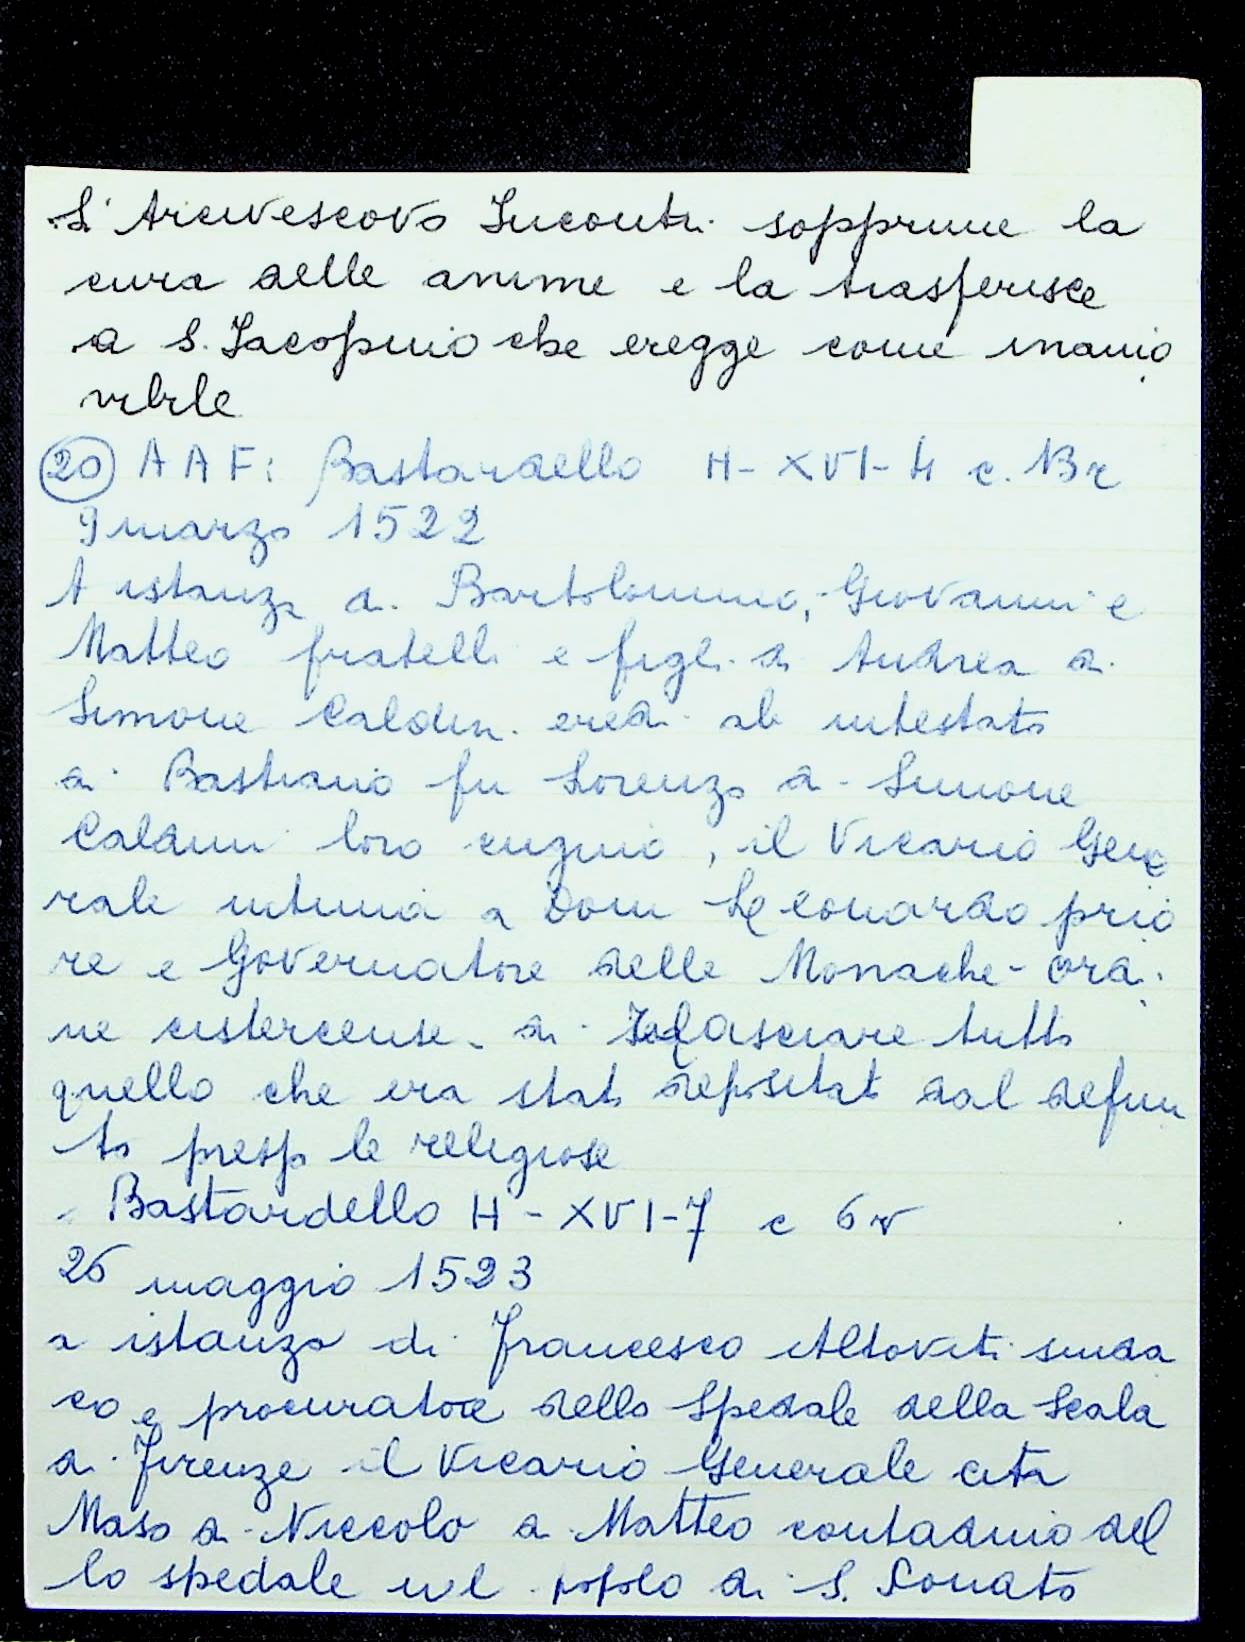 L'Arcivescovo Incontri sopprime la
cura delle anime e la trasferisce
a S. Jacopino che eregge come inamo
vibile
20 AAF: Bastardello H-XVI-4 c. 13r
9 marzo 1522
A istanza di Bartolommeo, Giovanni e
Matteo fratelli e figli di Andrea di
Simone Caldini eredi ab intestato
di Bastiano fu Lorenzo di Simone
Caldini loro cugino, il Vicario Gene
rale intima a Dom Leonardo prio
re e Governatore delle Monache - ordi
ne cistercense - di rilasciare tutto
quello che era stato depositato dal defun
to presso le religiose
Bastardello H-XVI-7 c 6v
26 maggio 1523
a istanza di Francesco Altoviti sinda
co e procuratore dello Spedale della Scala
di Firenze il Vicario Generale cita
Maso di Niccolo di Matteo contadino del
lo spedale nel popolo di S. Donato